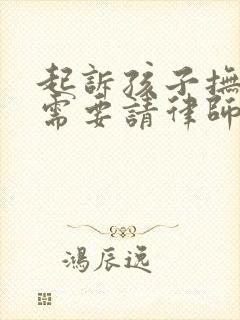 起訴孩子撫
需要請律師
鴻辰逸